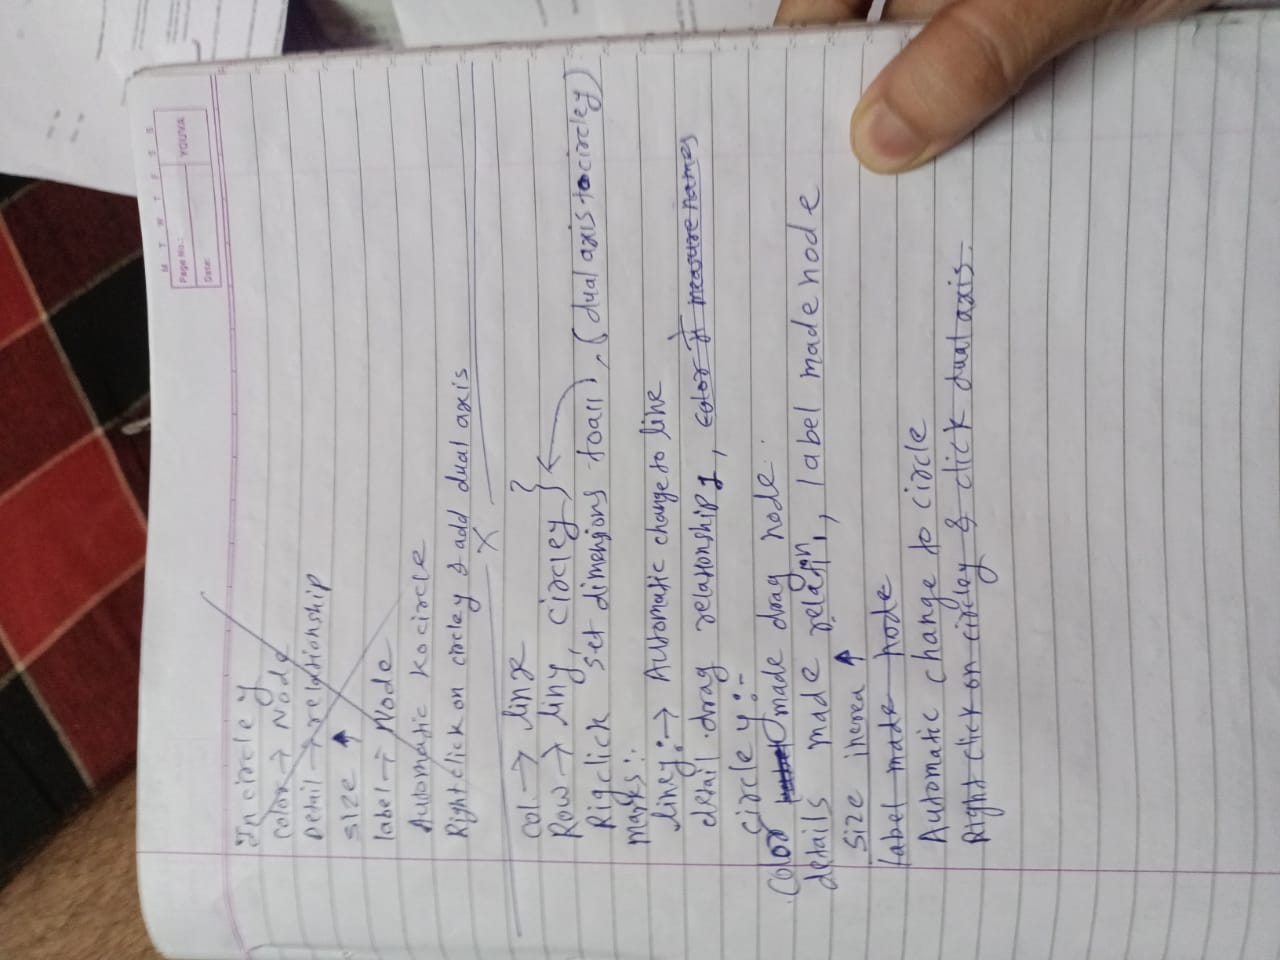 M T W T F S S
Page No.:
Date:
YOUVA
In circle y
Color → Node
Detail → relationship
Size ↑
label → Node
Automatic ko circle
Right click on circley & add dual axis
X
Col. → linx
Row → liny, circley
Rigclick set dimensions toall), (dual axis to circley)
marks:
liney:→ Automatic change to line
detail drag relationship, color measure names
circley:-
Color made drag node.
details made relation, label made node
Size increa ↑
Label made node
Automatic change to circle
Right click on circley & click dual axis.